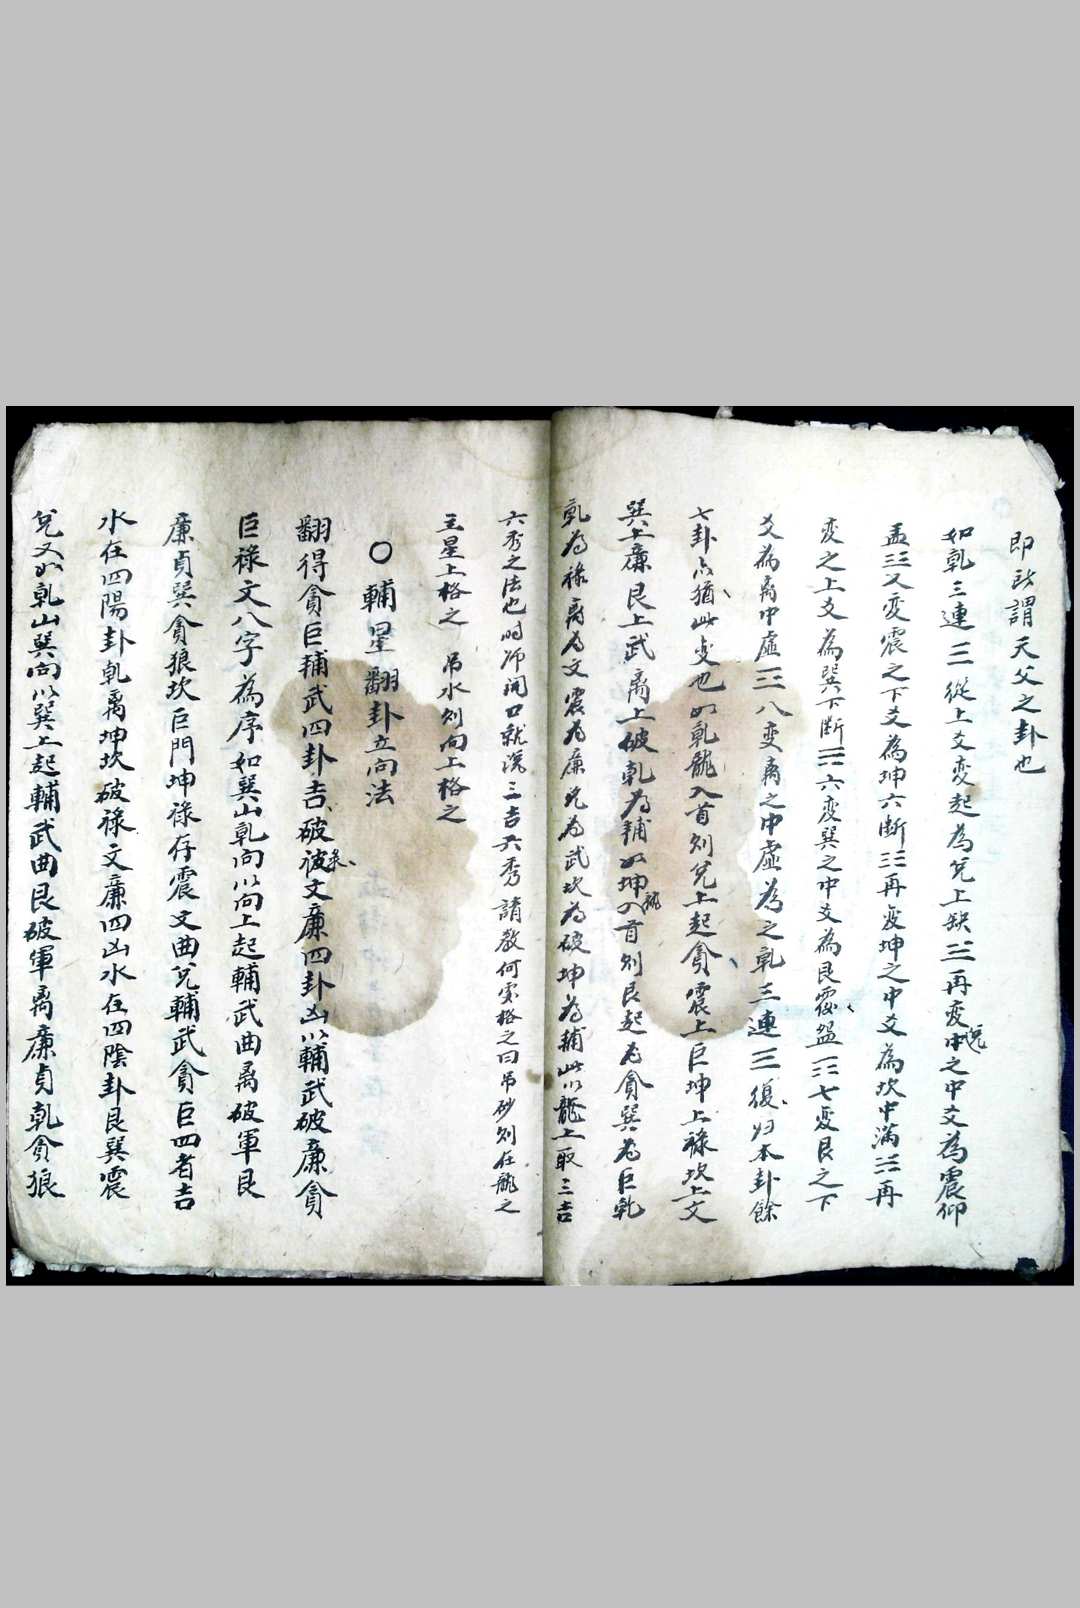 即所謂天父之卦也
如乾三連☰從上爻变起為兌上缺☱再变兌之中爻為震仰
盂☳又变震之下爻為坤六斷☷再变坤之中爻為坎中滿☵再
变之上爻為巽下斷☴六变巽之中爻為艮覆盌☶七变艮之下
爻為离中虛☲八变离之中虛為之乾三連☰復归本卦餘
七卦亦猶此变也如乾龍入首则兌上起貪震上巨坤上祿坎上文
巽上廉艮上武离上破乾為輔如坤龍入首则艮起為貪巽為巨乾
乾為祿离為文震為廉兌為武坎為破坤為輔此以龍上取三吉
六秀之法也时师開口就說三吉六秀請教何處格之曰吊砂则在龍之
主星上格之 吊水则向上格之
〇輔星翻卦立向法
翻得貪巨輔武四卦吉破祿文廉四卦凶以輔武破廉貪
巨祿文八字為序如巽山乾向以向上起輔武曲离破軍艮
廉貞巽貪狼坎巨門坤祿存震文曲兌輔武貪巨四者吉
水在四陽卦乾离坤坎破祿文廉四凶水在四陰卦艮巽震
兌又如乾山巽向以巽上起輔武曲艮破軍离廉貞乾貪狼